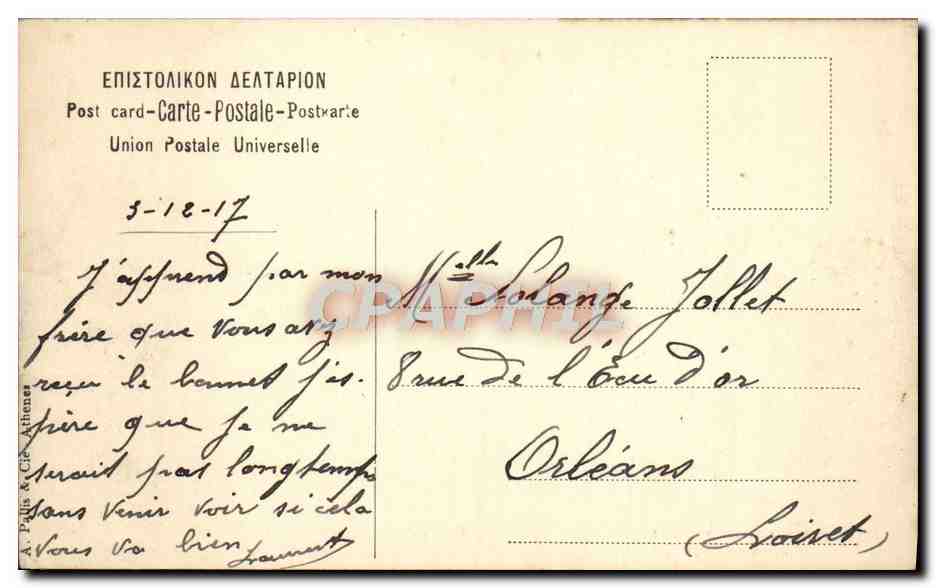 ΕΠΙΣΤΟΛΙΚΟΝ ΔΕΛΤΑΡΙΟΝ
Post card-Carte-Postale-Postkarte
Union Postale Universelle
3-12-17
J'apprend par mon
frère que vous avez
reçu le bonnet j'es-
père que je ne
serait pas longtemps
sans venir voir si cela
vous va bien
Laurent
Melle Solange Jollet
8 rue de l'Ecu d'or
Orléans
(Loiret)
A. Pallis & Cie - Athenes
CPAPHIL